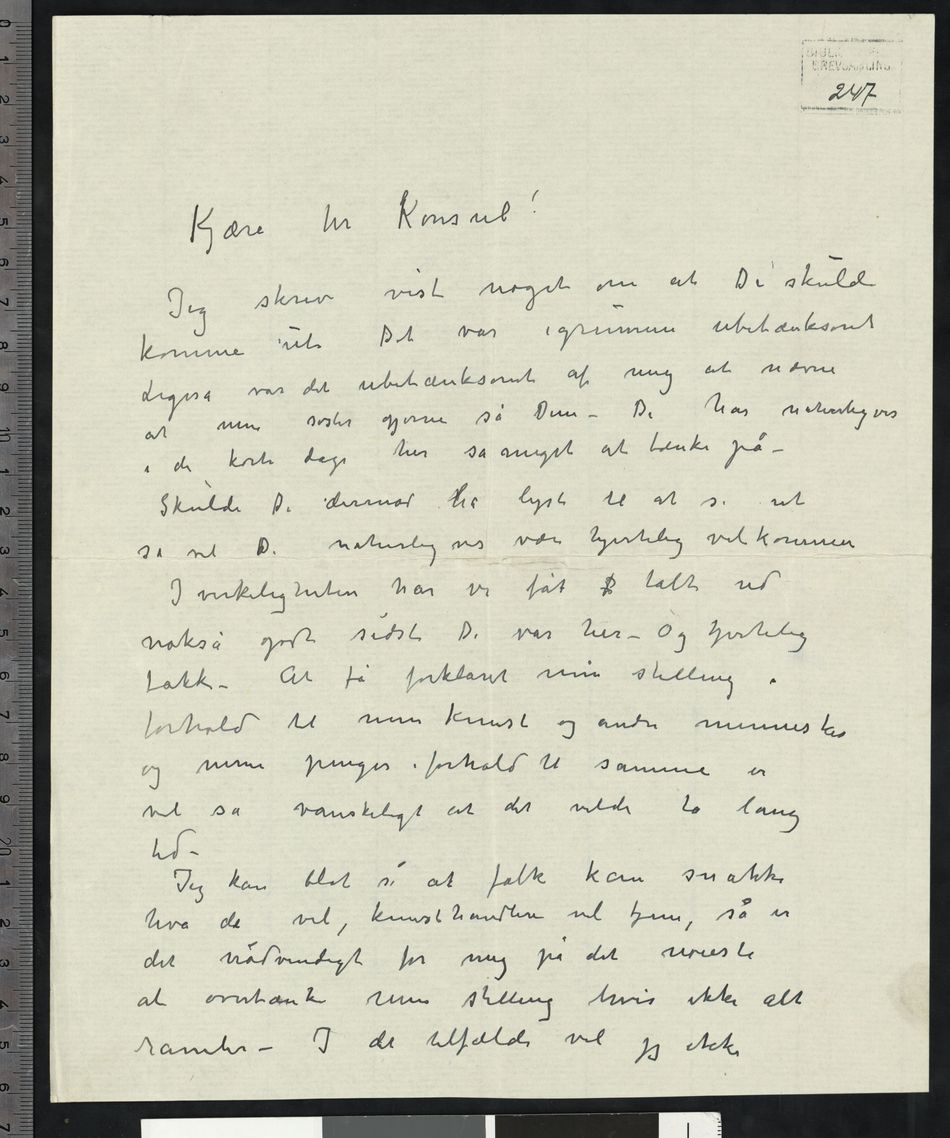 247
Kjære hr Konsul!
Jeg skrev vist noget om at De skulde
komme ut. Det var igrunnen ubetænksomt
Ligeså var det ubetænksomt af mig at nævne
at min søster gjerne så Dem – De har naturligvis
i de korte dage her så meget at tænke på –
Skulde De derimod ha lyst til at se ut
så vil De naturligvis være hjertelig velkommen
I virkeligheten har vi fåt talt ud
nokså godt sidst De var her – Og hjertelig
takk – At få forklaret min stilling i
forhold til min kunst og andre mennesker
og mine penger i forhold til samme er
vel så vanskeligt at det vilde ta lang
tid –
Jeg kan blot si at folk kan snakke
hva de vil, kunsthandlere vil tjene, så er
det nødvendigt for mig på det nøieste
at overtænke min stilling hvis ikke alt
ramler – I det tilfælde vil jeg ikke